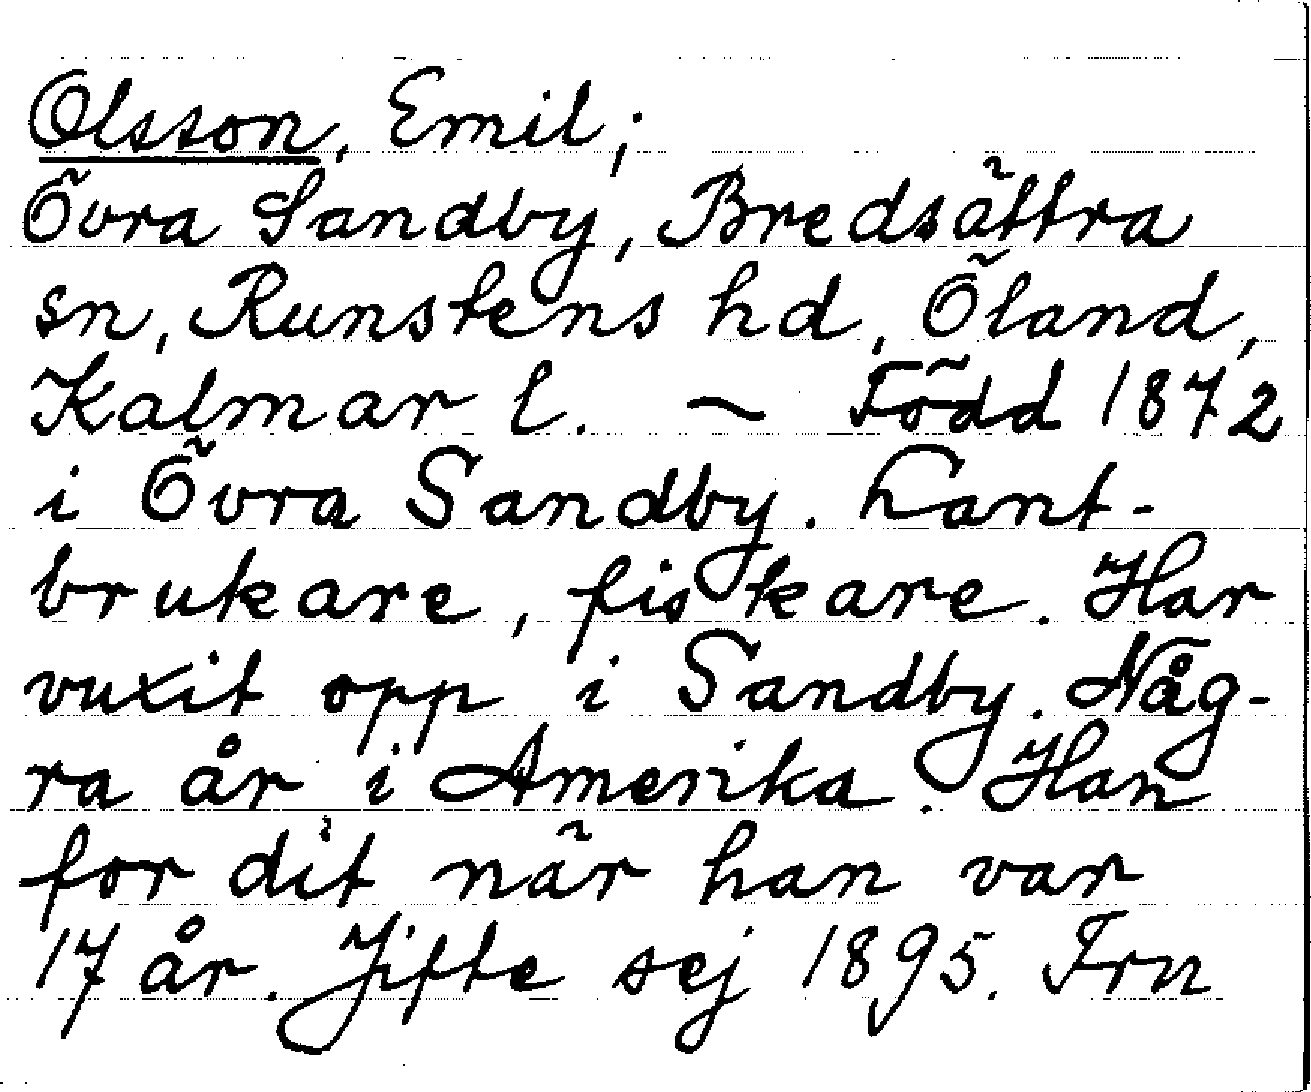 Olsson, Emil;
Övra Sandby, Bredsättra
sn, Runstens hd, Öland,
Kalmar l. – Född 1872
i Övra Sandby. Lant-
brukare, fiskare. Har
vuxit opp i Sandby. Någ-
ra år i Amerika. Han
for dit när han var
17 år. Jifte sej 1895. Frn